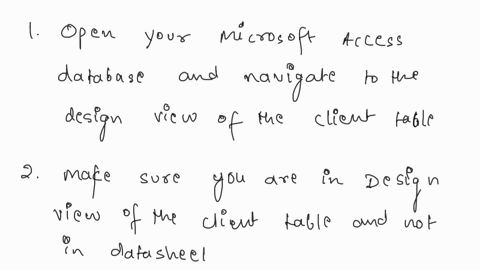 1. Open your Microsoft Access
database and navigate to the
design view of the client table
2. Make sure you are in Design
view of the client table and not
in datasheet